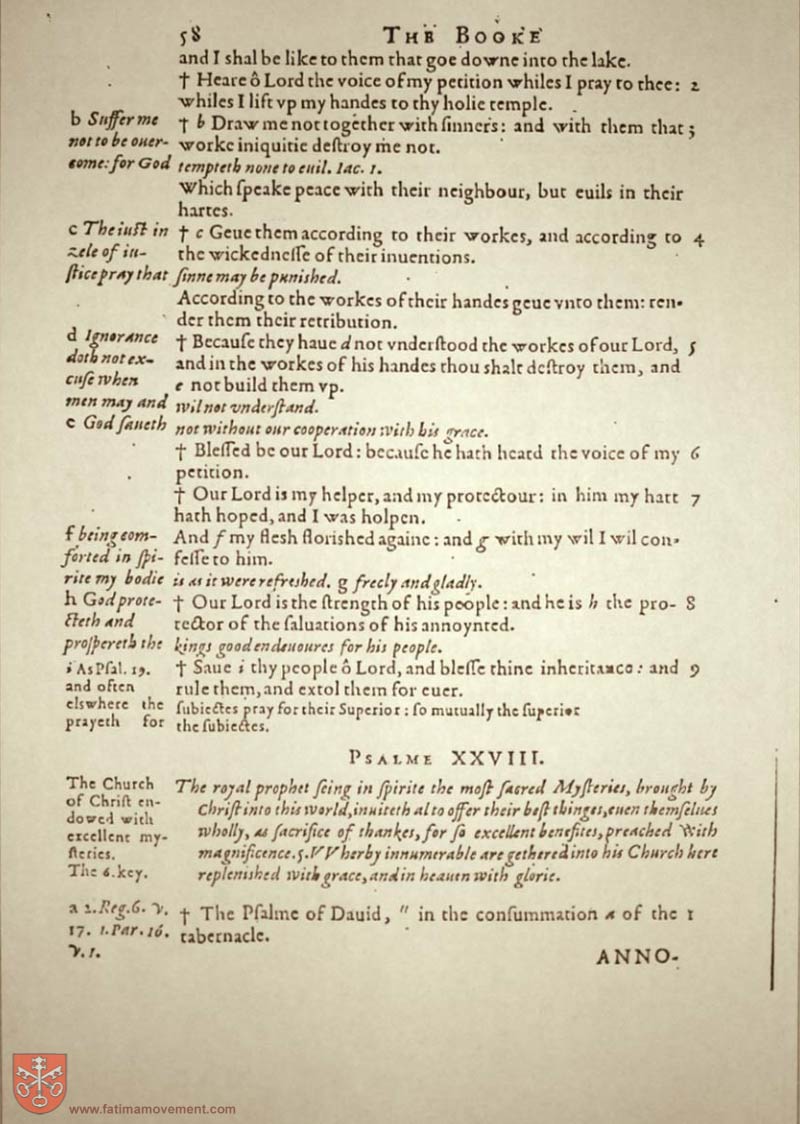 58 THE BOOKE
and I shal be like to them that goe downe into the lake.
† Heare ô Lord the voice of my petition whiles I pray to thee: 2
whiles I lift vp my handes to thy holie temple.
b Suffer me † b Draw me not together with sinners: and with them that 3
not to be ouer- worke iniquitie destroy me not.
come: for God tempteth none to euil. Iac. 1.
Which speake peace with their neighbour, but euils in their
hartes.
c The iust in † c Geue them according to their workes, and according to 4
zele of iu- the wickednesse of their inuentions.
stice pray that sinne may be punished.
According to the workes of their handes geue vnto them: ren-
der them their retribution.
d Ignorance † Because they haue d not vnderstood the workes of our Lord, 5
doth not ex- and in the workes of his handes thou shalt destroy them, and
cuse when e not build them vp.
men may and wil not vnderstand.
e God saueth not without our cooperation with his grace.
† Blessed be our Lord: because he hath heard the voice of my 6
petition.
† Our Lord is my helper, and my protectour: in him my hart 7
hath hoped, and I was holpen.
f being com- And f my flesh florished againe: and g with my wil I wil con-
forted in spi- fesse to him.
rite my bodie is as it were refreshed. g freely and gladly.
h God prote- † Our Lord is the strength of his people: and he is h the pro- 8
cteth and tector of the saluations of his annoynted.
prospereth the kings good endeuoures for his people.
i As Psal. 19. † Saue i thy people ô Lord, and blesse thine inheritance: and 9
and often rule them, and extol them for euer.
elswhere the subiectes pray for their Superior: so mutually the superior
prayeth for the subiectes.
PSALME XXVIII.
The Church The royal prophet seing in spirite the most sacred Mysteries, brought by
of Christ en- Christ into this world, inuiteth al to offer their best thinges, euen themselues
dowed with wholly, as sacrifice of thankes, for so excellent benefites, preached with
excellent my- magnificence. 5. VVherby innumerable are gethered into his Church here
steries. replenished with grace, and in heauen with glorie.
The 6. key.
a 2. Reg. 6. v. † The Psalme of Dauid, " in the consummation a of the 1
17. 1. Par. 16. tabernacle.
v. 1. ANNO-
www.fatimamovement.com